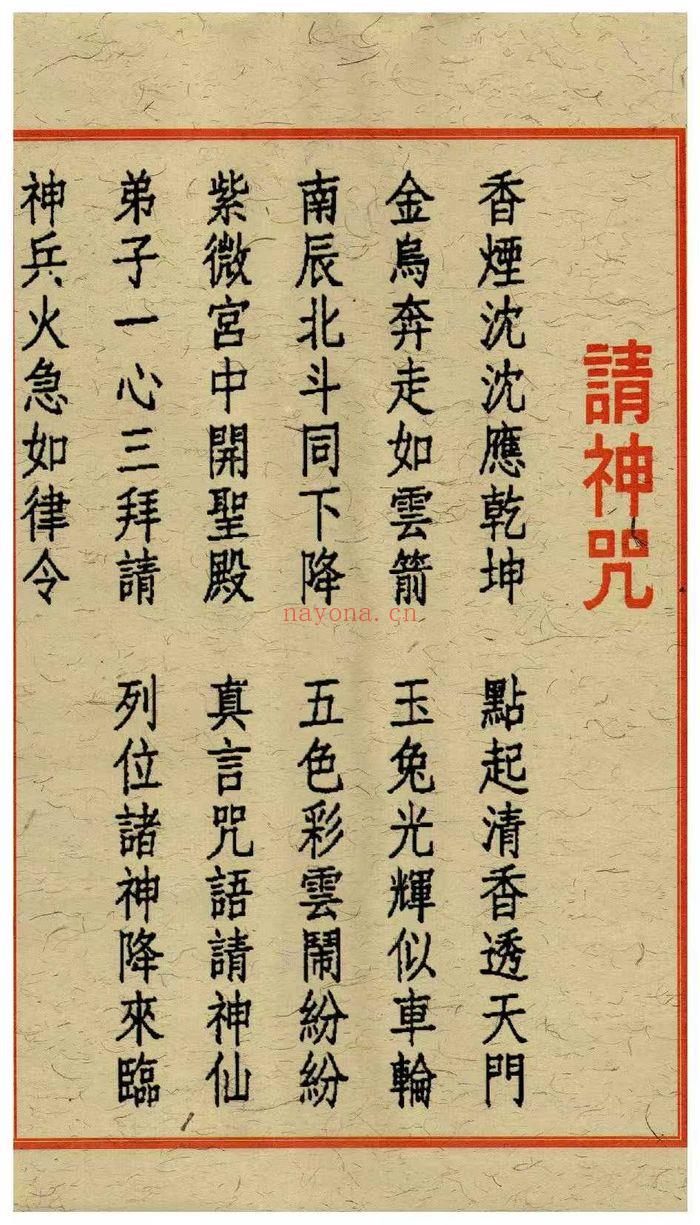 請神咒
香煙沈沈應乾坤 點起清香透天門
金烏奔走如雲箭 玉兔光輝似車輪
南辰北斗同下降 五色彩雲鬧紛紛
紫微宮中開聖殿 真言咒語請神仙
弟子一心三拜請 列位諸神降來臨
神兵火急如律令
nayona.cn